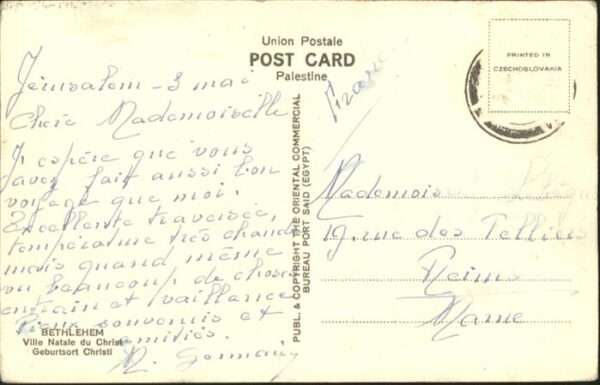 Union Postale
POST CARD
Palestine
PRINTED IN
CZECHOSLOVAKIA
Jérusalem - 3 mai
Chère Mademoiselle
J'espère que vous
avez fait aussi bon
voyage que moi.
Excellente traversée,
température très chaude
mais quand même
vu beaucoup de choses
entrain et vaillance
souvenirs et
amitiés.
BETHLEHEM
Ville Natale du Christ
Geburtsort Christi
PUBL. & COPYRIGHT THE ORIENTAL COMMERCIAL
BUREAU PORT SAID (EGYPT)
Mademois
19, rue des Telliers
Reims
Marne